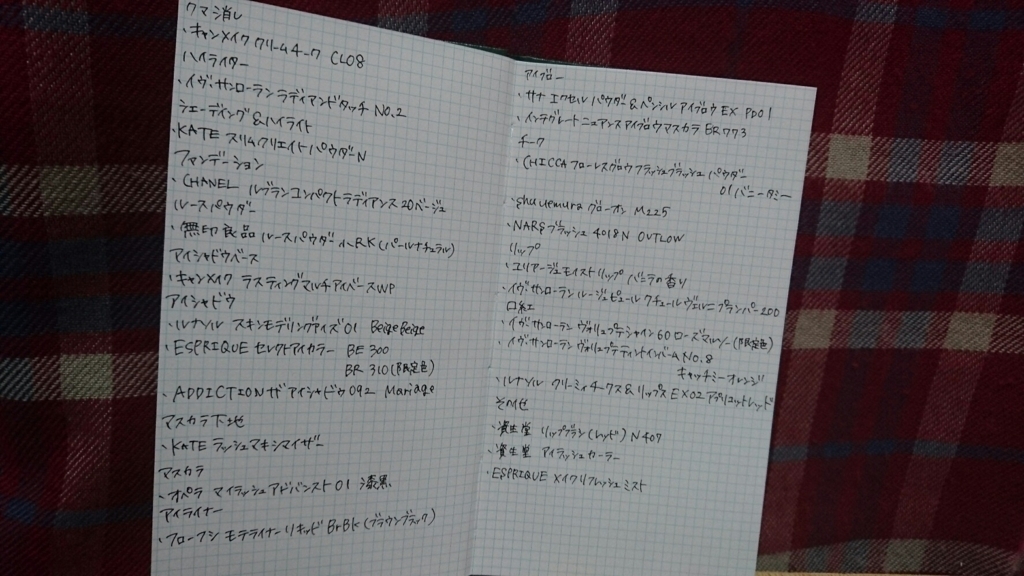 クマ消し
・キャンメイク クリームチーク CL08
ハイライター
・イヴ・サンローラン ラディアントタッチ NO.2
シェーディング&ハイライト
・KATE スリムクリエイトパウダーN
ファンデーション
・CHANEL ルブランコンパクトラディアンス 20ベージュ
ルースパウダー
・無印良品 ルースパウダー小RK(パールナチュラル)
アイシャドウベース
・キャンメイク ラスティングマルチアイベースWP
アイシャドウ
・ルナソル スキンモデリングアイズ01 Beige Beige
・ESPRIQUE セレクトアイカラー BE300
BR310(限定色)
・ADDICTION ザ アイシャドウ 092 Mariage
マスカラ下地
・KATE ラッシュマキシマイザー
マスカラ
・オペラ マイラッシュアドバンスト 01 漆黒
アイライナー
・フローフシ モテライナーリキッド BrBk(ブラウンブラック)
アイブロー
・サナ エクセル パウダー&ペンシル アイブロウ EX PD01
・インテグレート ニュアンスアイブロウマスカラ BR773
チーク
・CHICCA フローレスグロウ フラッシュブラッシュ パウダー
01 バニータミー
・shu uemura グローオン M225
・NARS ブラッシュ 4018N OUTLOW
リップ
・エリアージュモイストリップ バニラの香り
・イヴサンローラン ルージュピュール クチュールヴェルニ プランパー 200
口紅
・イヴサンローラン ヴォリュプテシャイン 60 ローズマルソー(限定色)
・イヴサンローラン ヴォリュプテティントインバーム NO.8
キャッチミーオレンジ
・ルナソル クリーミィチークス&リップス EX02 アプリコットレッド
その他
・資生堂 リップブラシ(レッド) N407
・資生堂 アイラッシュカーラー
・ESPRIQUE メイクリフレッシュミスト